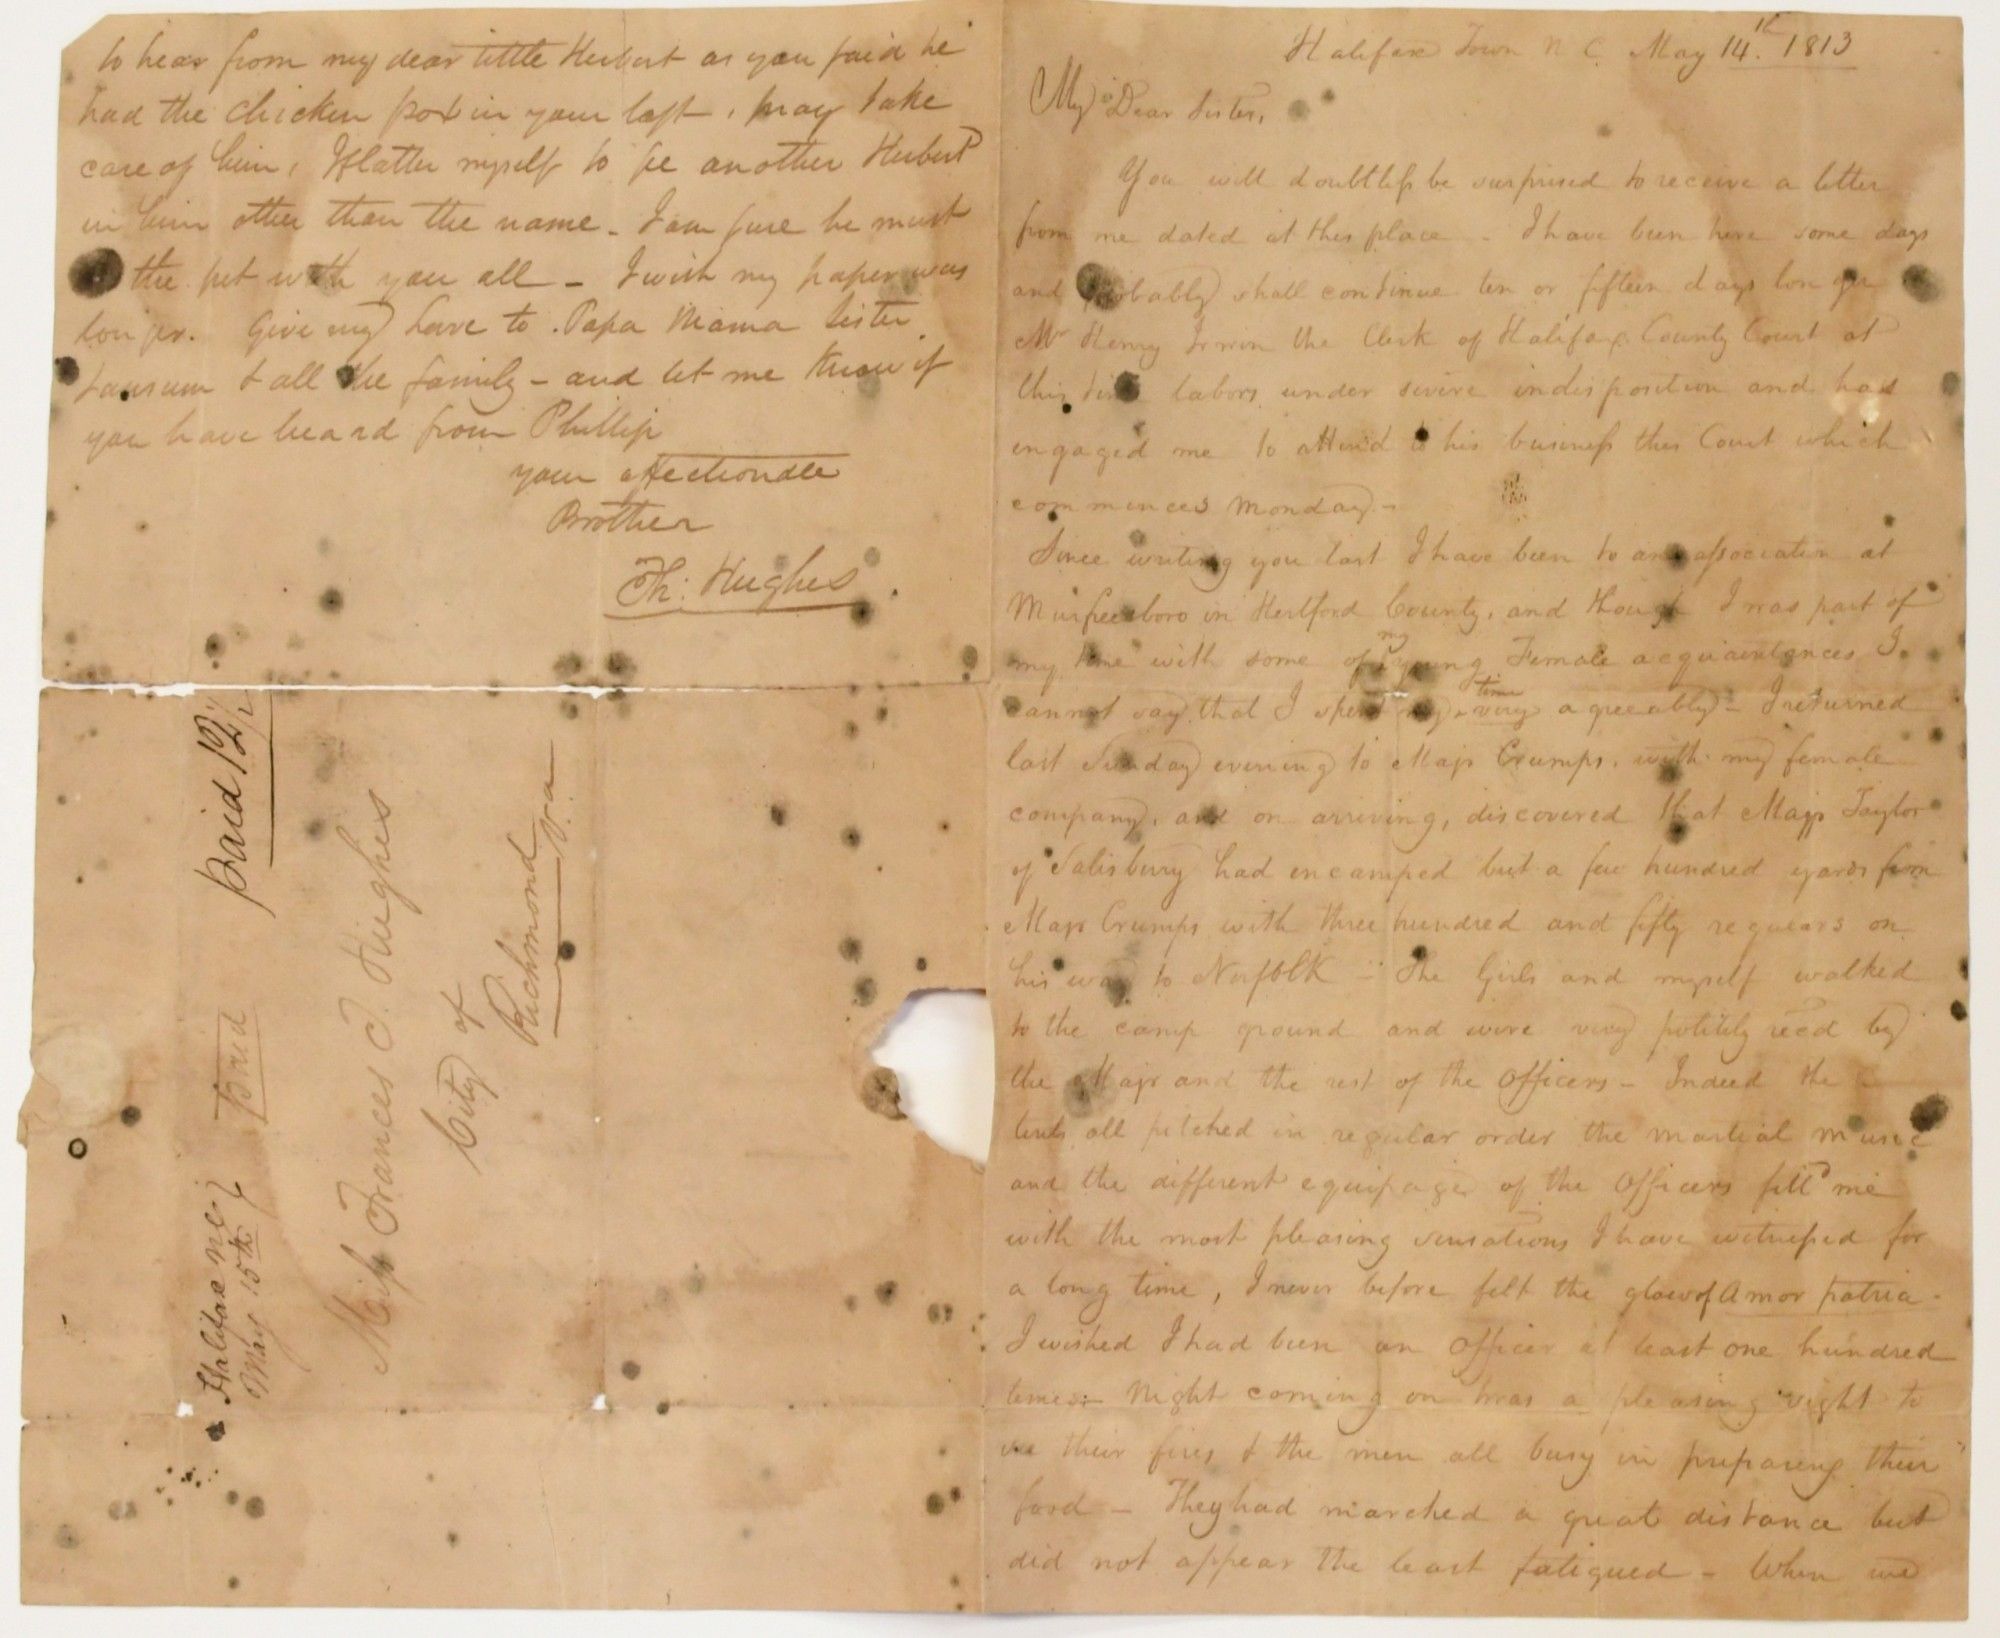 Halifax Town N C. May 14th. 1813
My Dear Sister,
You will doubtless be surprised to receive a letter
from me dated at this place - I have been here some days
and probably shall continue ten or fifteen days longer
Mr Henry Irwin the Clerk of Halifax County Court at
this time labors under severe indisposition and has
engaged me to attend to his business this Court which
commences Monday -
Since writing you last I have been to an association at
Murfreesboro in Hertford County, and though I was part of
my time with some of my young Female acquaintances I
cannot say that I spent my time very agreeably - I returned
last Sunday evening to Majr Crumps, with my female
company, and on arriving, discovered that Majr Taylor
of Salisbury had encamped but a few hundred yards from
Majr Crumps with three hundred and fifty regulars on
his way to Norfolk - The Girls and myself walked
to the camp ground and were very politely recd by
the Majr and the rest of the Officers - Indeed the
tents all pitched in regular order the martial music
and the different equipage of the Officers fill'd me
with the most pleasing sensations I have witnessed for
a long time, I never before felt the glow of Amor patria -
I wished I had been an Officer at least one hundred
times - Night coming on twas a pleasing sight to
see their fires & the men all busy in preparing their
food - They had marched a great distance but
did not appear the least fatigued - When we
to hear from my dear little Herbert as you said he
had the chicken pox in your last, pray take
care of him, I flatter myself to see another Herbert
in him other than the name - I am sure he must
the pet with you all - I wish my paper was
longer. Give my love to Papa Mama Sister
& all the family - and let me know if
you have heard from Phillip
your affectionate
Brother
Th: Hughes
Paid 12½
Paid
Halifax NC.
May 15th
Miss Frances T. Hughes
City of
Richmond
Va.